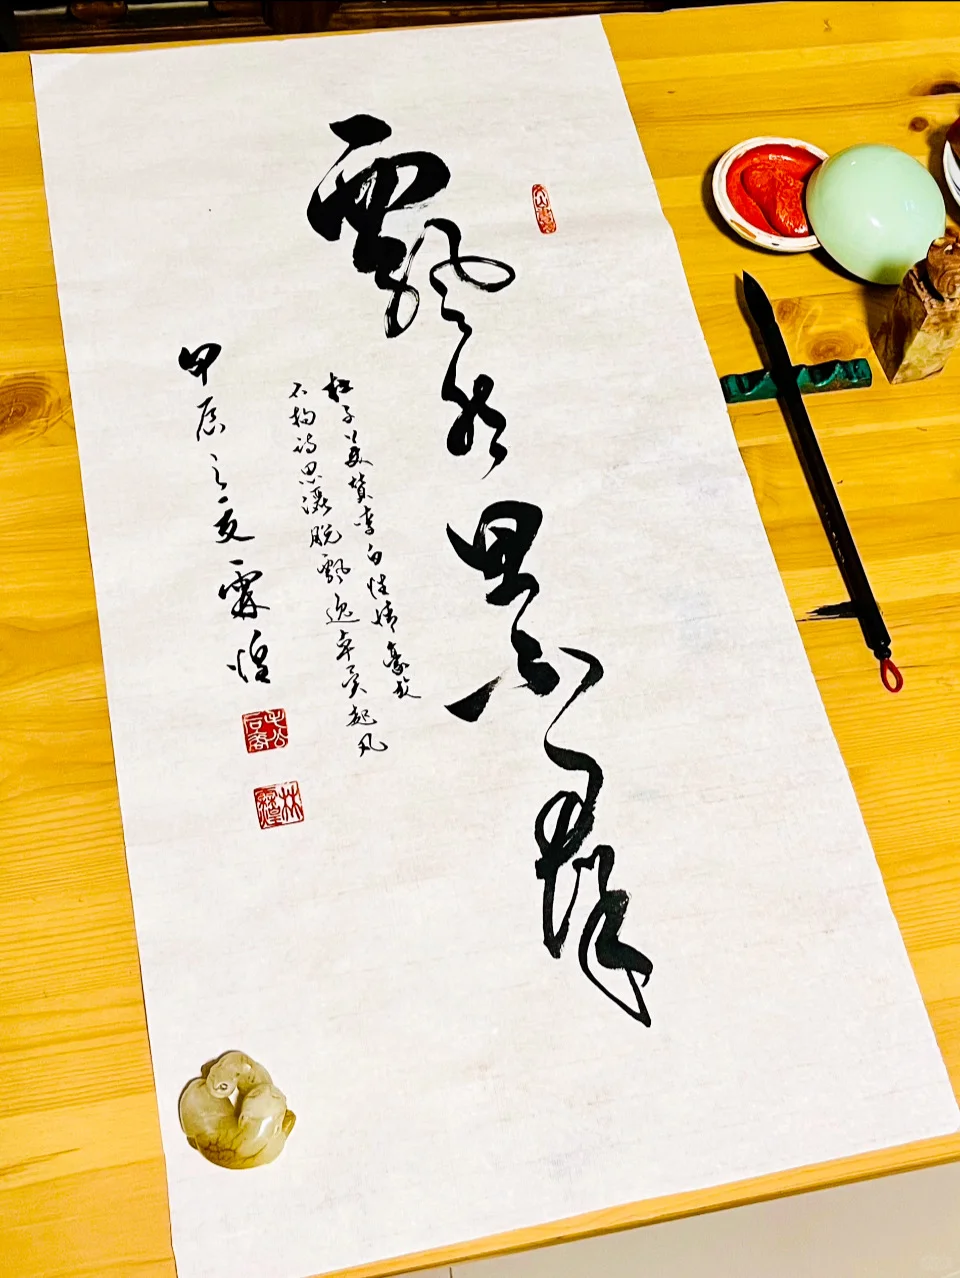 飘然思不群
杜子美赞李白性情豪放
不拘诗思洒脱飘逸卓尔起凡
甲辰之夏霖煌